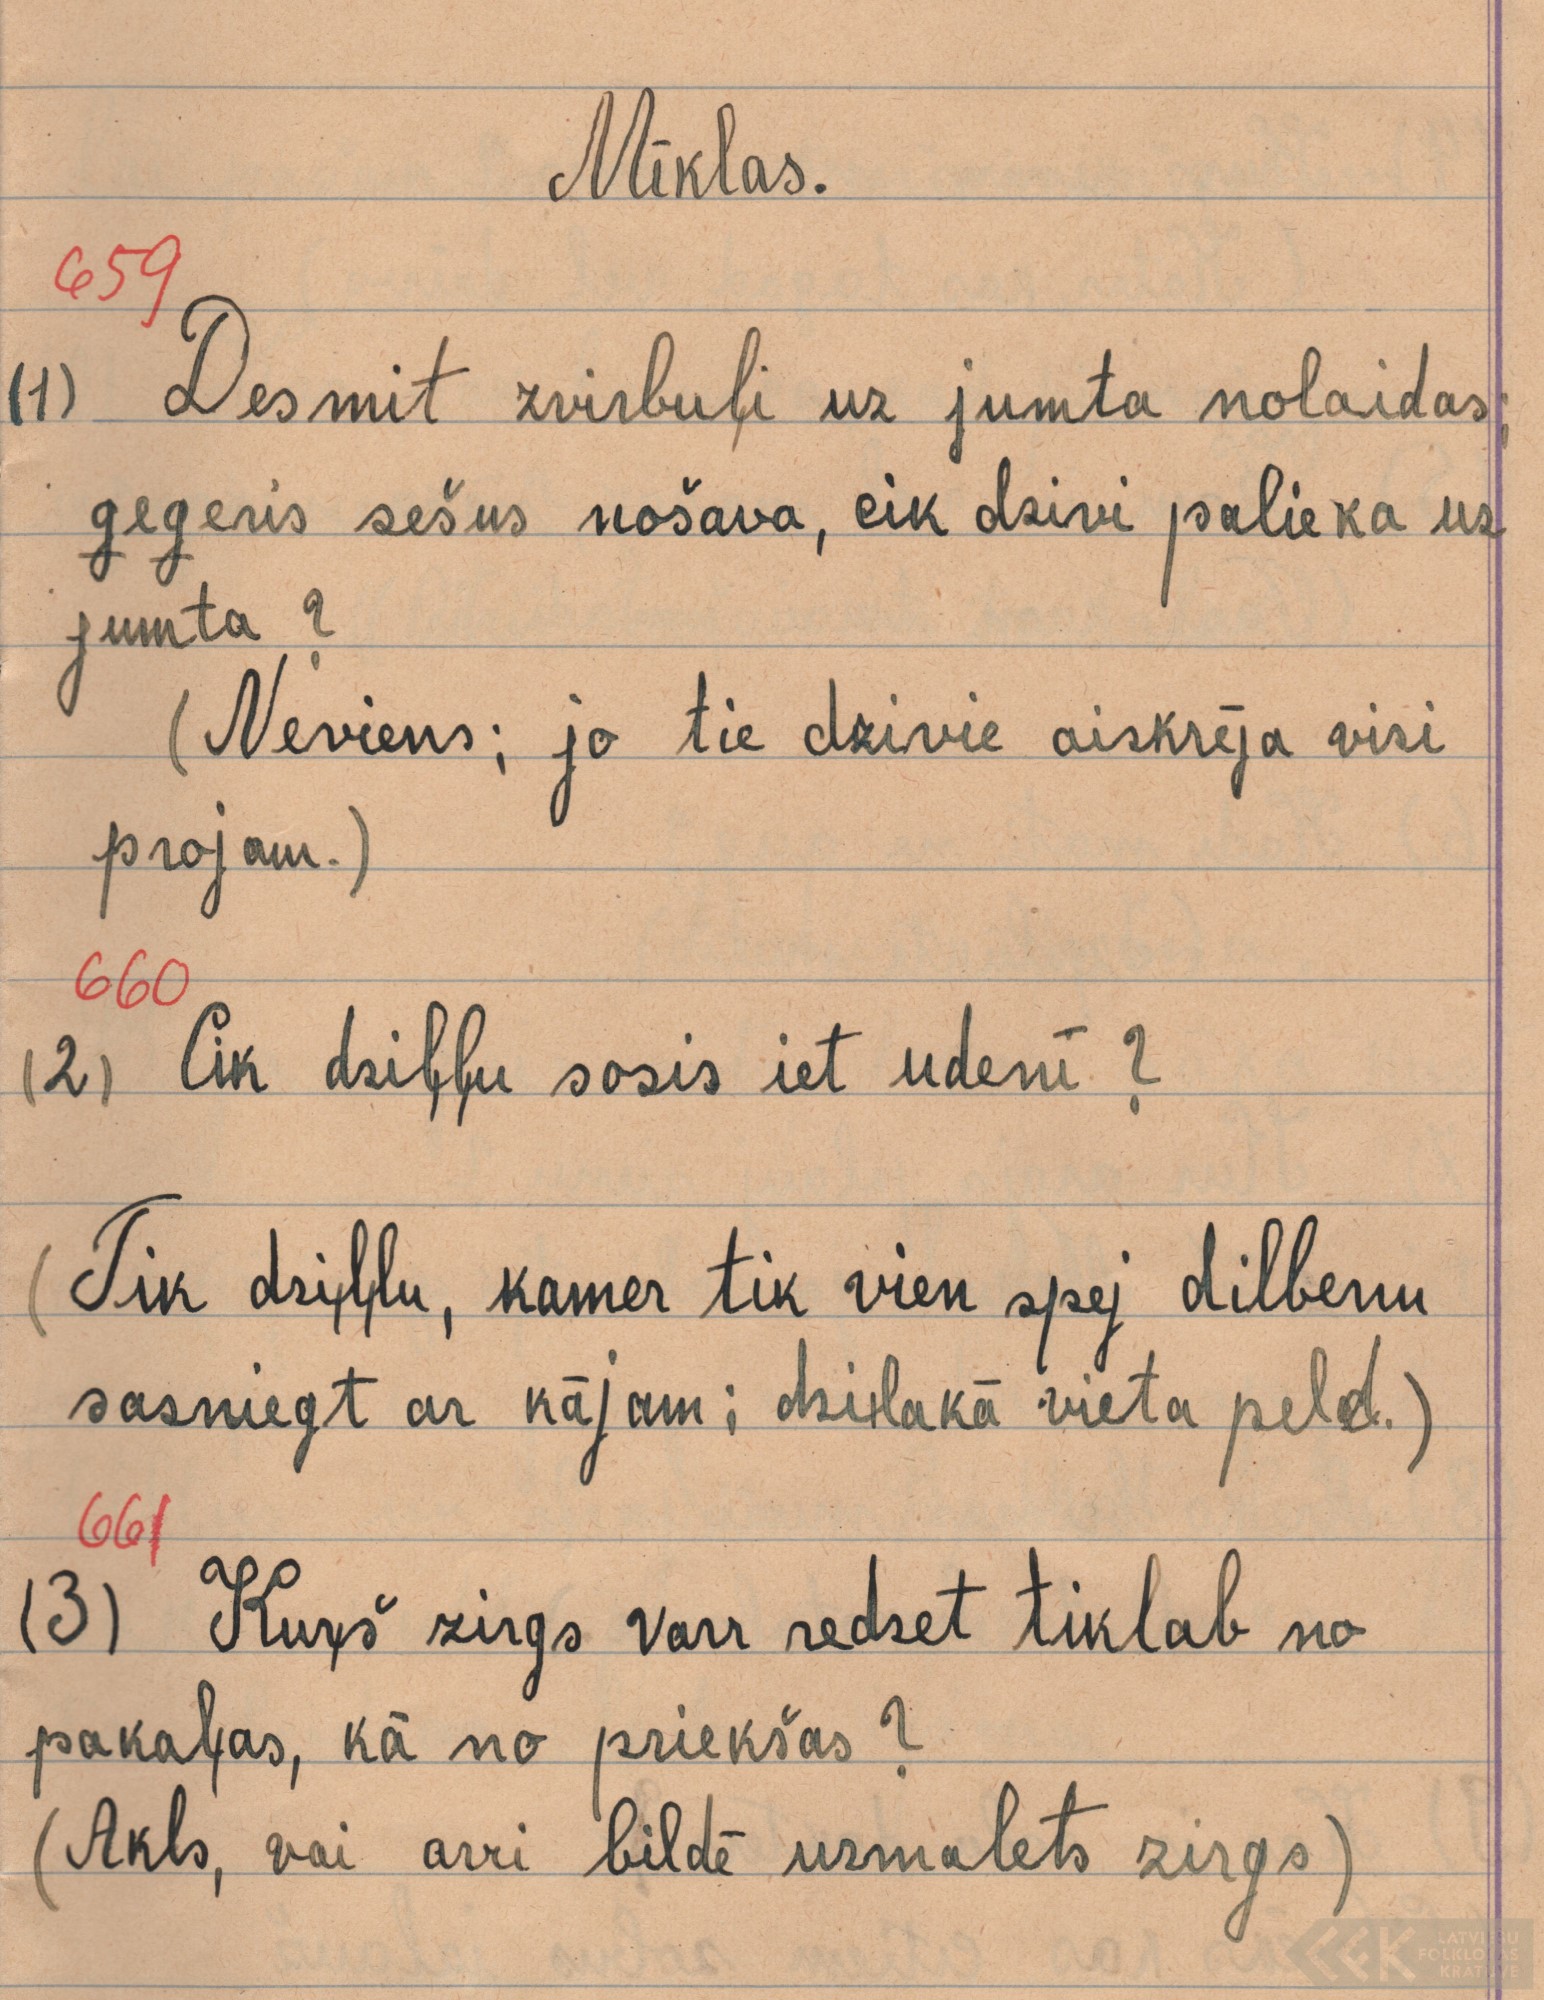 Mīklas.
659
(1) Desmit zvirbuļi uz jumta nolaidas;
gegeris sešus nošava, cik dzivi palieka uz
jumta?
(Neviens; jo tie dzivie aiskrēja visi
projam.)
660
(2) Cik dziļļu sosis iet udenī?
(Tik dziļļu, kamer tik vien spej dilbenu
sasniegt ar kājam; dziļakā vieta peld.)
661
(3) Kuŗš zirgs varr redzet tiklab no
pakaļas, kā no priekšas?
(Akls, vai arri bildē uzmalets zirgs)
LFK LATVIEŠU
FOLKLORAS
KRĀTUVE